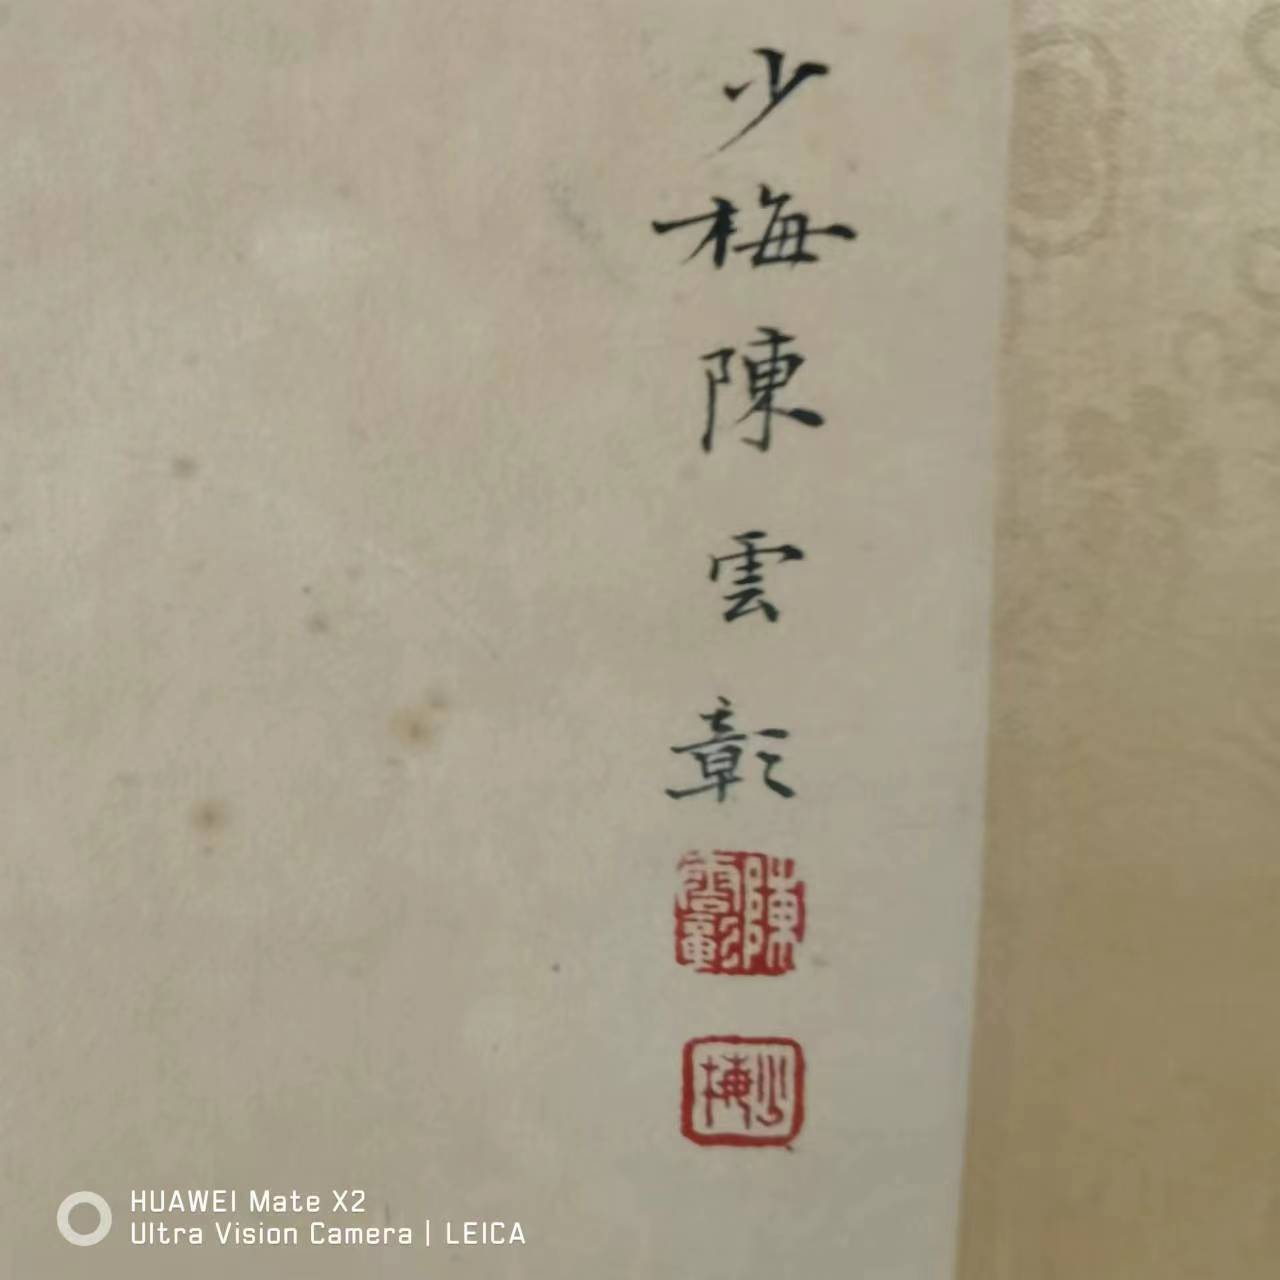 少梅陳雲彰
陳雲彰
少梅
HUAWEI Mate X2
Ultra Vision Camera | LEICA